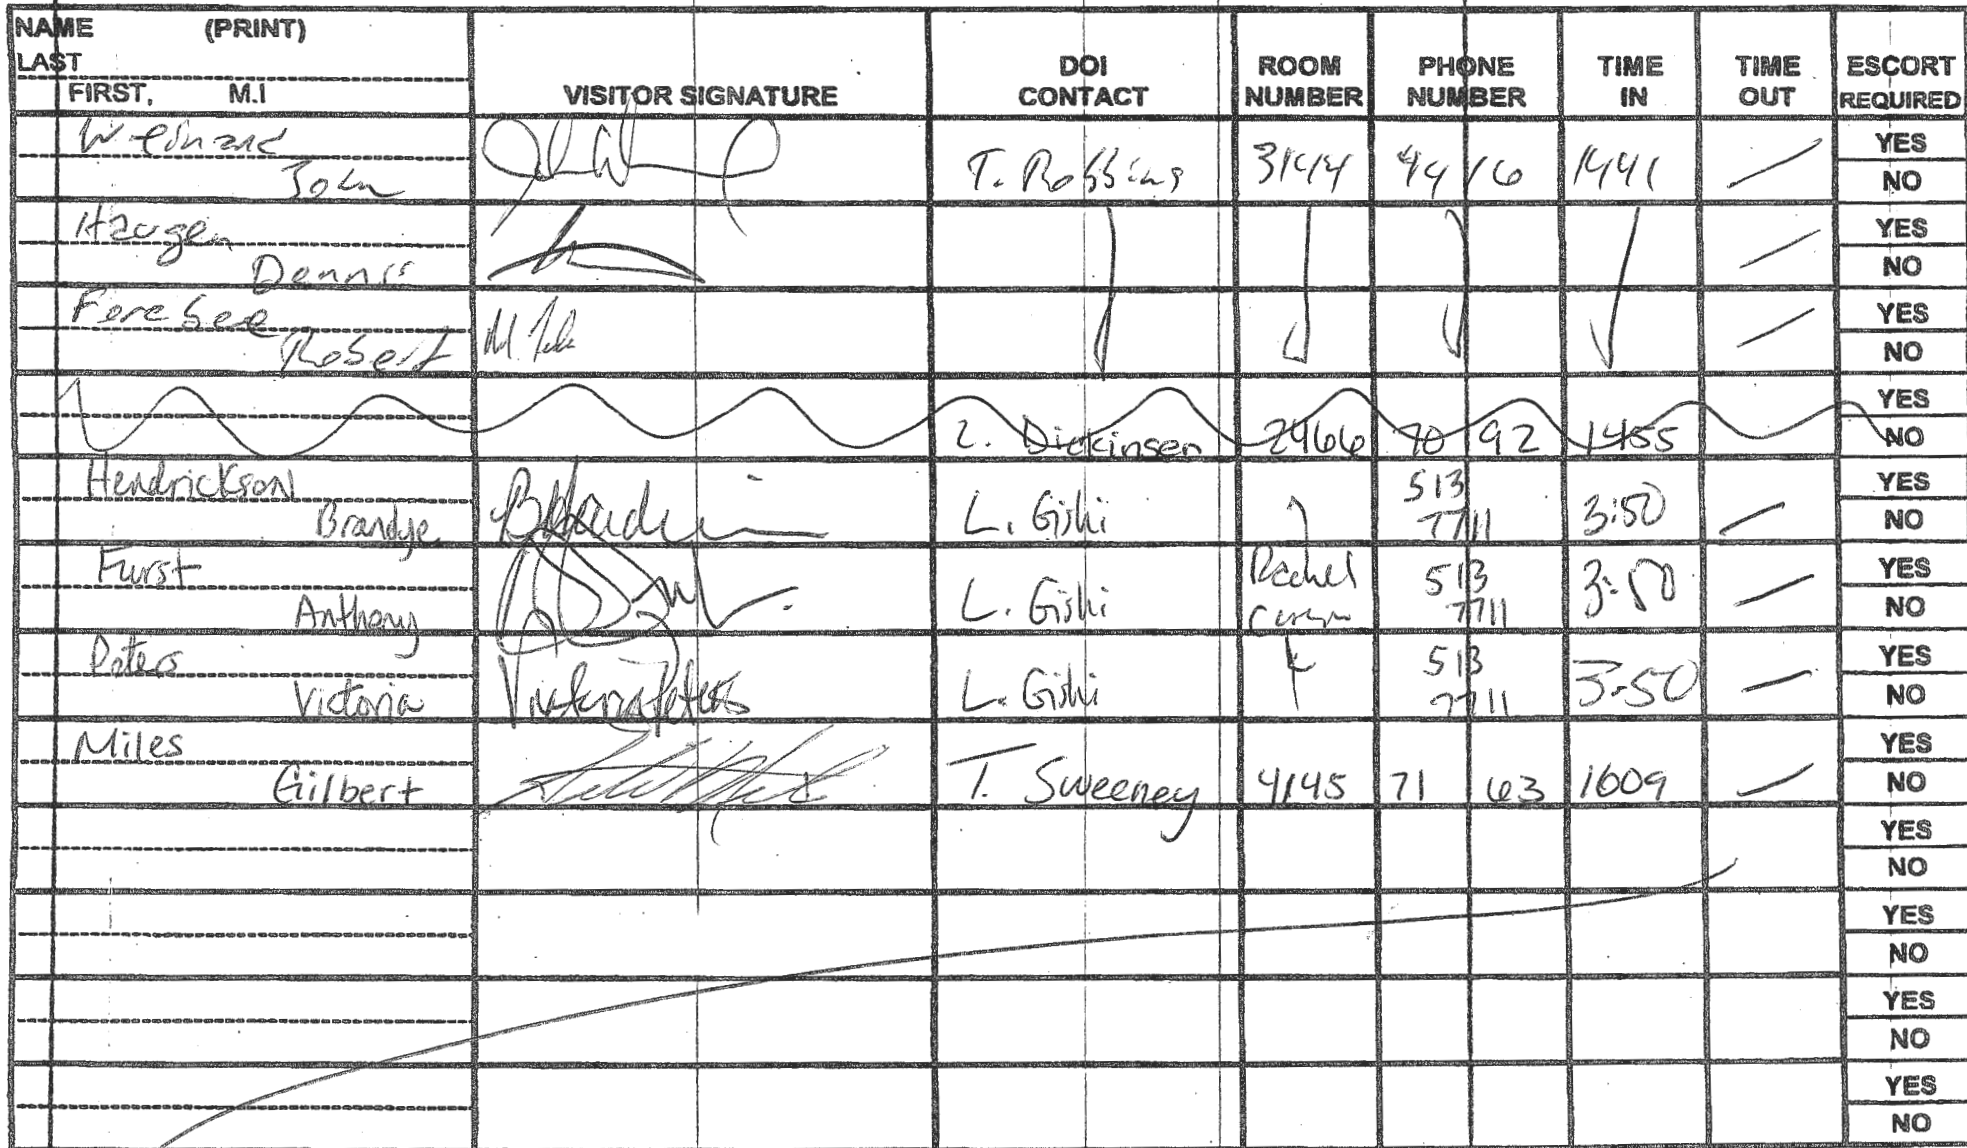 NAME (PRINT)
LAST
FIRST, M.I
VISITOR SIGNATURE
DOI CONTACT
ROOM NUMBER
PHONE NUMBER
TIME IN
TIME OUT
ESCORT REQUIRED
Weinard
John
T. Robbins 3144 4416 1441
YES
NO
Haugen
Dennis
YES
NO
Ferebee
Robert
YES
NO
Dickinsen 2466 70 92 1455
YES
NO
Hendrickson
Brandye
L. Gishi 513 7711 3:50
YES
NO
Furst
Anthony
L. Gishi Rachel 513 7711 3:50
YES
NO
Peters
Victoria
Victoria Peters
L. Gishi 513 7711 3:50
YES
NO
Miles
Gilbert
T. Sweeney 4145 71 63 1609
YES
NO
YES
NO
YES
NO
YES
NO
YES
NO